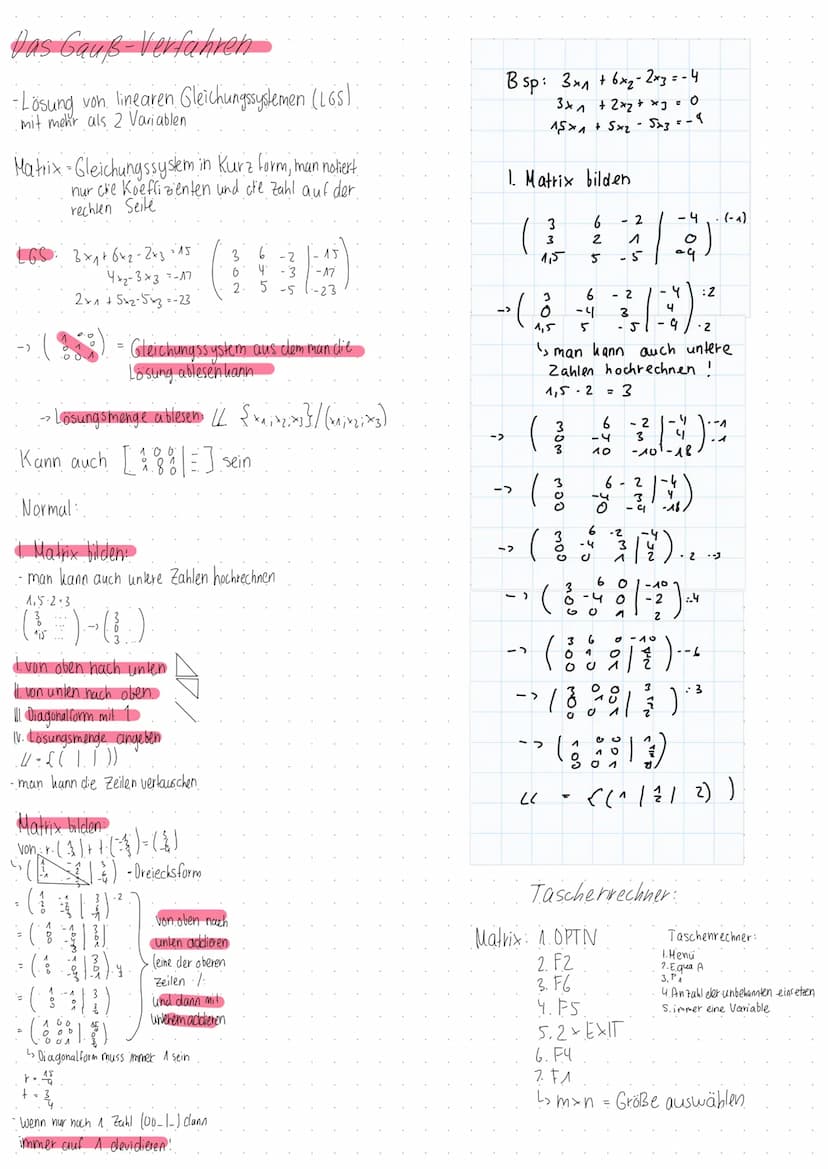 Das Gauß-Verfahren
- Lösung von linearen Gleichungssystemen (LGS)
mit mehr als 2 Variablen
Matrix = Gleichungssystem in Kurzform, man notiert
nur die Koeffizienten und die Zahl auf der
rechten Seite
LGS: 3x1 + 6x2 - 2x3 = 15
4x2 - 3x3 = -17
2x1 + 5x2 - 5x3 = -23
( 3 6 -2 | -15
0 4 -3 | -17
2 5 -5 | -23 )
-> ( 1 0 0
0 1 0
0 0 1 ) = Gleichungssystem aus dem man die
Lösung ablesen kann
-> Lösungsmenge ablesen LL {x1, x2, x3} / (x1; x2; x3)
Kann auch [ ] sein
Normal:
1. Matrix bilden:
- man kann auch untere Zahlen hochrechnen
1,5 · 2 = 3
( 3 ...
0 ...
1,5 ... ) -> ( 3
0
3 )
I. von oben nach unten
II. von unten nach oben
III. Diagonalform mit 1
IV. Lösungsmenge angeben
LL = {( | | )}
- man kann die Zeilen vertauschen
Matrix bilden
von: r ·
- Dreiecksform
von oben nach
unten addieren
(eine der oberen
Zeilen · / :
und dann mit
unterem addieren
↳ Diagonalform muss immer 1 sein
r = 15/4
t = 3/4
- wenn nur noch 1 Zahl (00_|_) dann
immer auf 1 devidieren!
Bsp: 3x1 + 6x2 - 2x3 = -4
3x1 + 2x2 + x3 = 0
1,5x1 + 5x2 - 5x3 = -9
1. Matrix bilden
( 3 6 -2 | -4
3 2 1 | 0
1,5 5 -5 | -9 ) · (-1)
-> ( 3 6 -2 | -4
0 -4 3 | 4
1,5 5 -5 | -9 ) :2 · 2
↳ man kann auch untere
Zahlen hochrechnen !
1,5 · 2 = 3
-> ( 3 6 -2 | -4
0 -4 3 | 4
3 10 -10 | -18 ) · -1
-> ( 3 6 -2 | -4
0 -4 3 | 4
0 0 -9 | -18 )
-> ( 3 6 -2 | -4
0 -4 3 | 4
0 0 1 | 2 ) · 2 · -3
-> ( 3 6 0 | -10
0 -4 0 | -2
0 0 1 | 2 ) :-4
-> ( 3 6 0 | -10
0 1 0 | 1/2
0 0 1 | 2 ) · -6
-> ( 3 0 0 | 3
0 1 0 | 1/2
0 0 1 | 2 ) :3
-> ( 1 0 0 | 1
0 1 0 | 1/2
0 0 1 | 2 )
LL = {( 1 | 1/2 | 2) )
Taschenrechner:
Matrix: 1. OPTN
2. F2
3. F6
4. F5
5. 2 x EXIT
6. F4
7. F1
↳ m×n = Größe auswählen
Taschenrechner:
1. Menü
2. Equa A
3. F1
4. Anzahl der unbekannten eingeben
5. immer eine Variable